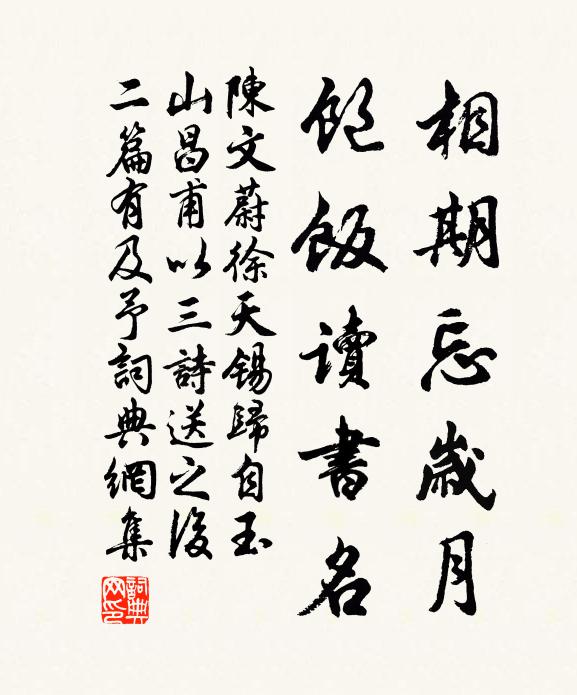 相期忘歲月
飽飯讀書名
陳文蔚徐天錫歸自玉
山昌甫以三詩送之後
二篇有及予詞典網集
詞典网印